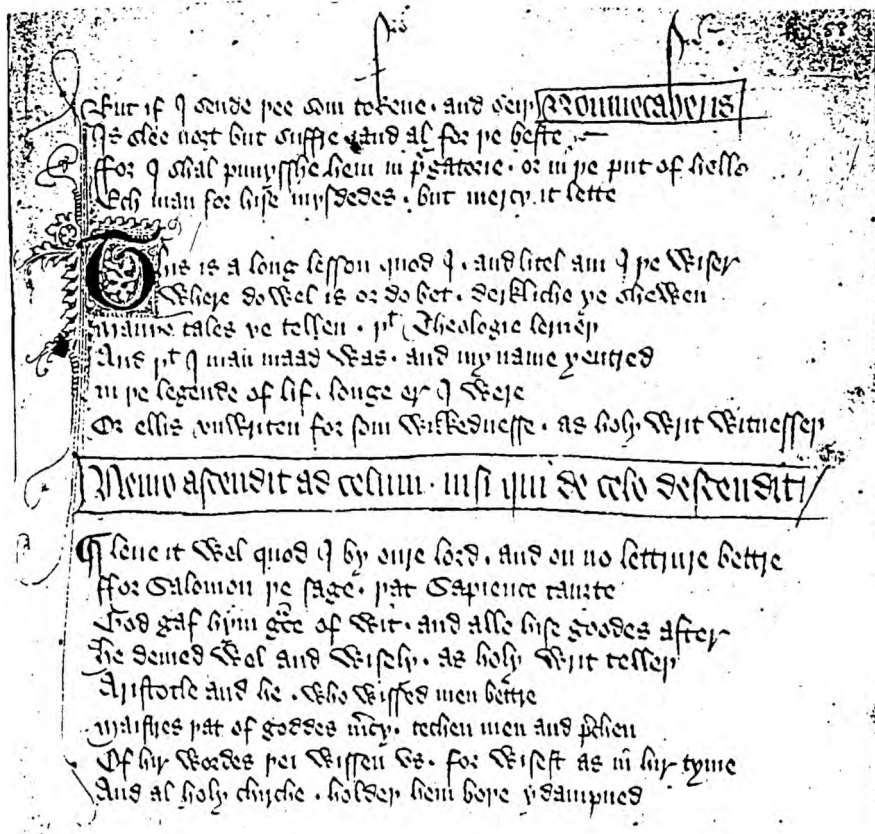 But if I sende þee som tokene · and seiþ Non mecaberis
Is slee noȝt but suffre · and al for þe beste
ffor I shal punysshe hem in p̃gatorie · or in þe put of helle
Ech man for hise mysdedes · but mercy it lette
This is a long lesson quod I · and litel am I þe wiser
Where dowel is or dobet · derkliche ye shewen
Manye tales ye tellen · þᵗ Theologie lerneþ
And þᵗ I man maad was · and my name yentred
In þe legende of lif · longe er I were
Or ellis vnwriten for som wikkednesse · as holy writ witnesseþ
Nemo ascendit ad celum · nisi qui de celo descendit
¶ I leue it wel quod I by oure lord · and on no lettrure bettre
ffor Salomon þe sage · þat Sapience tauȝte
God gaf hym gͣce of wit · and alle hise goodes after
He demed wel and wisely · as holy writ telleþ
Aristotle and he · who wissed men bettre
Maistres þat of goddes m̃cy · techen men and p̃chen
Of hir wordes þei wissen vs · for wisest as in hir tyme
And al holy chirche · holdeþ hem boþe ydampned